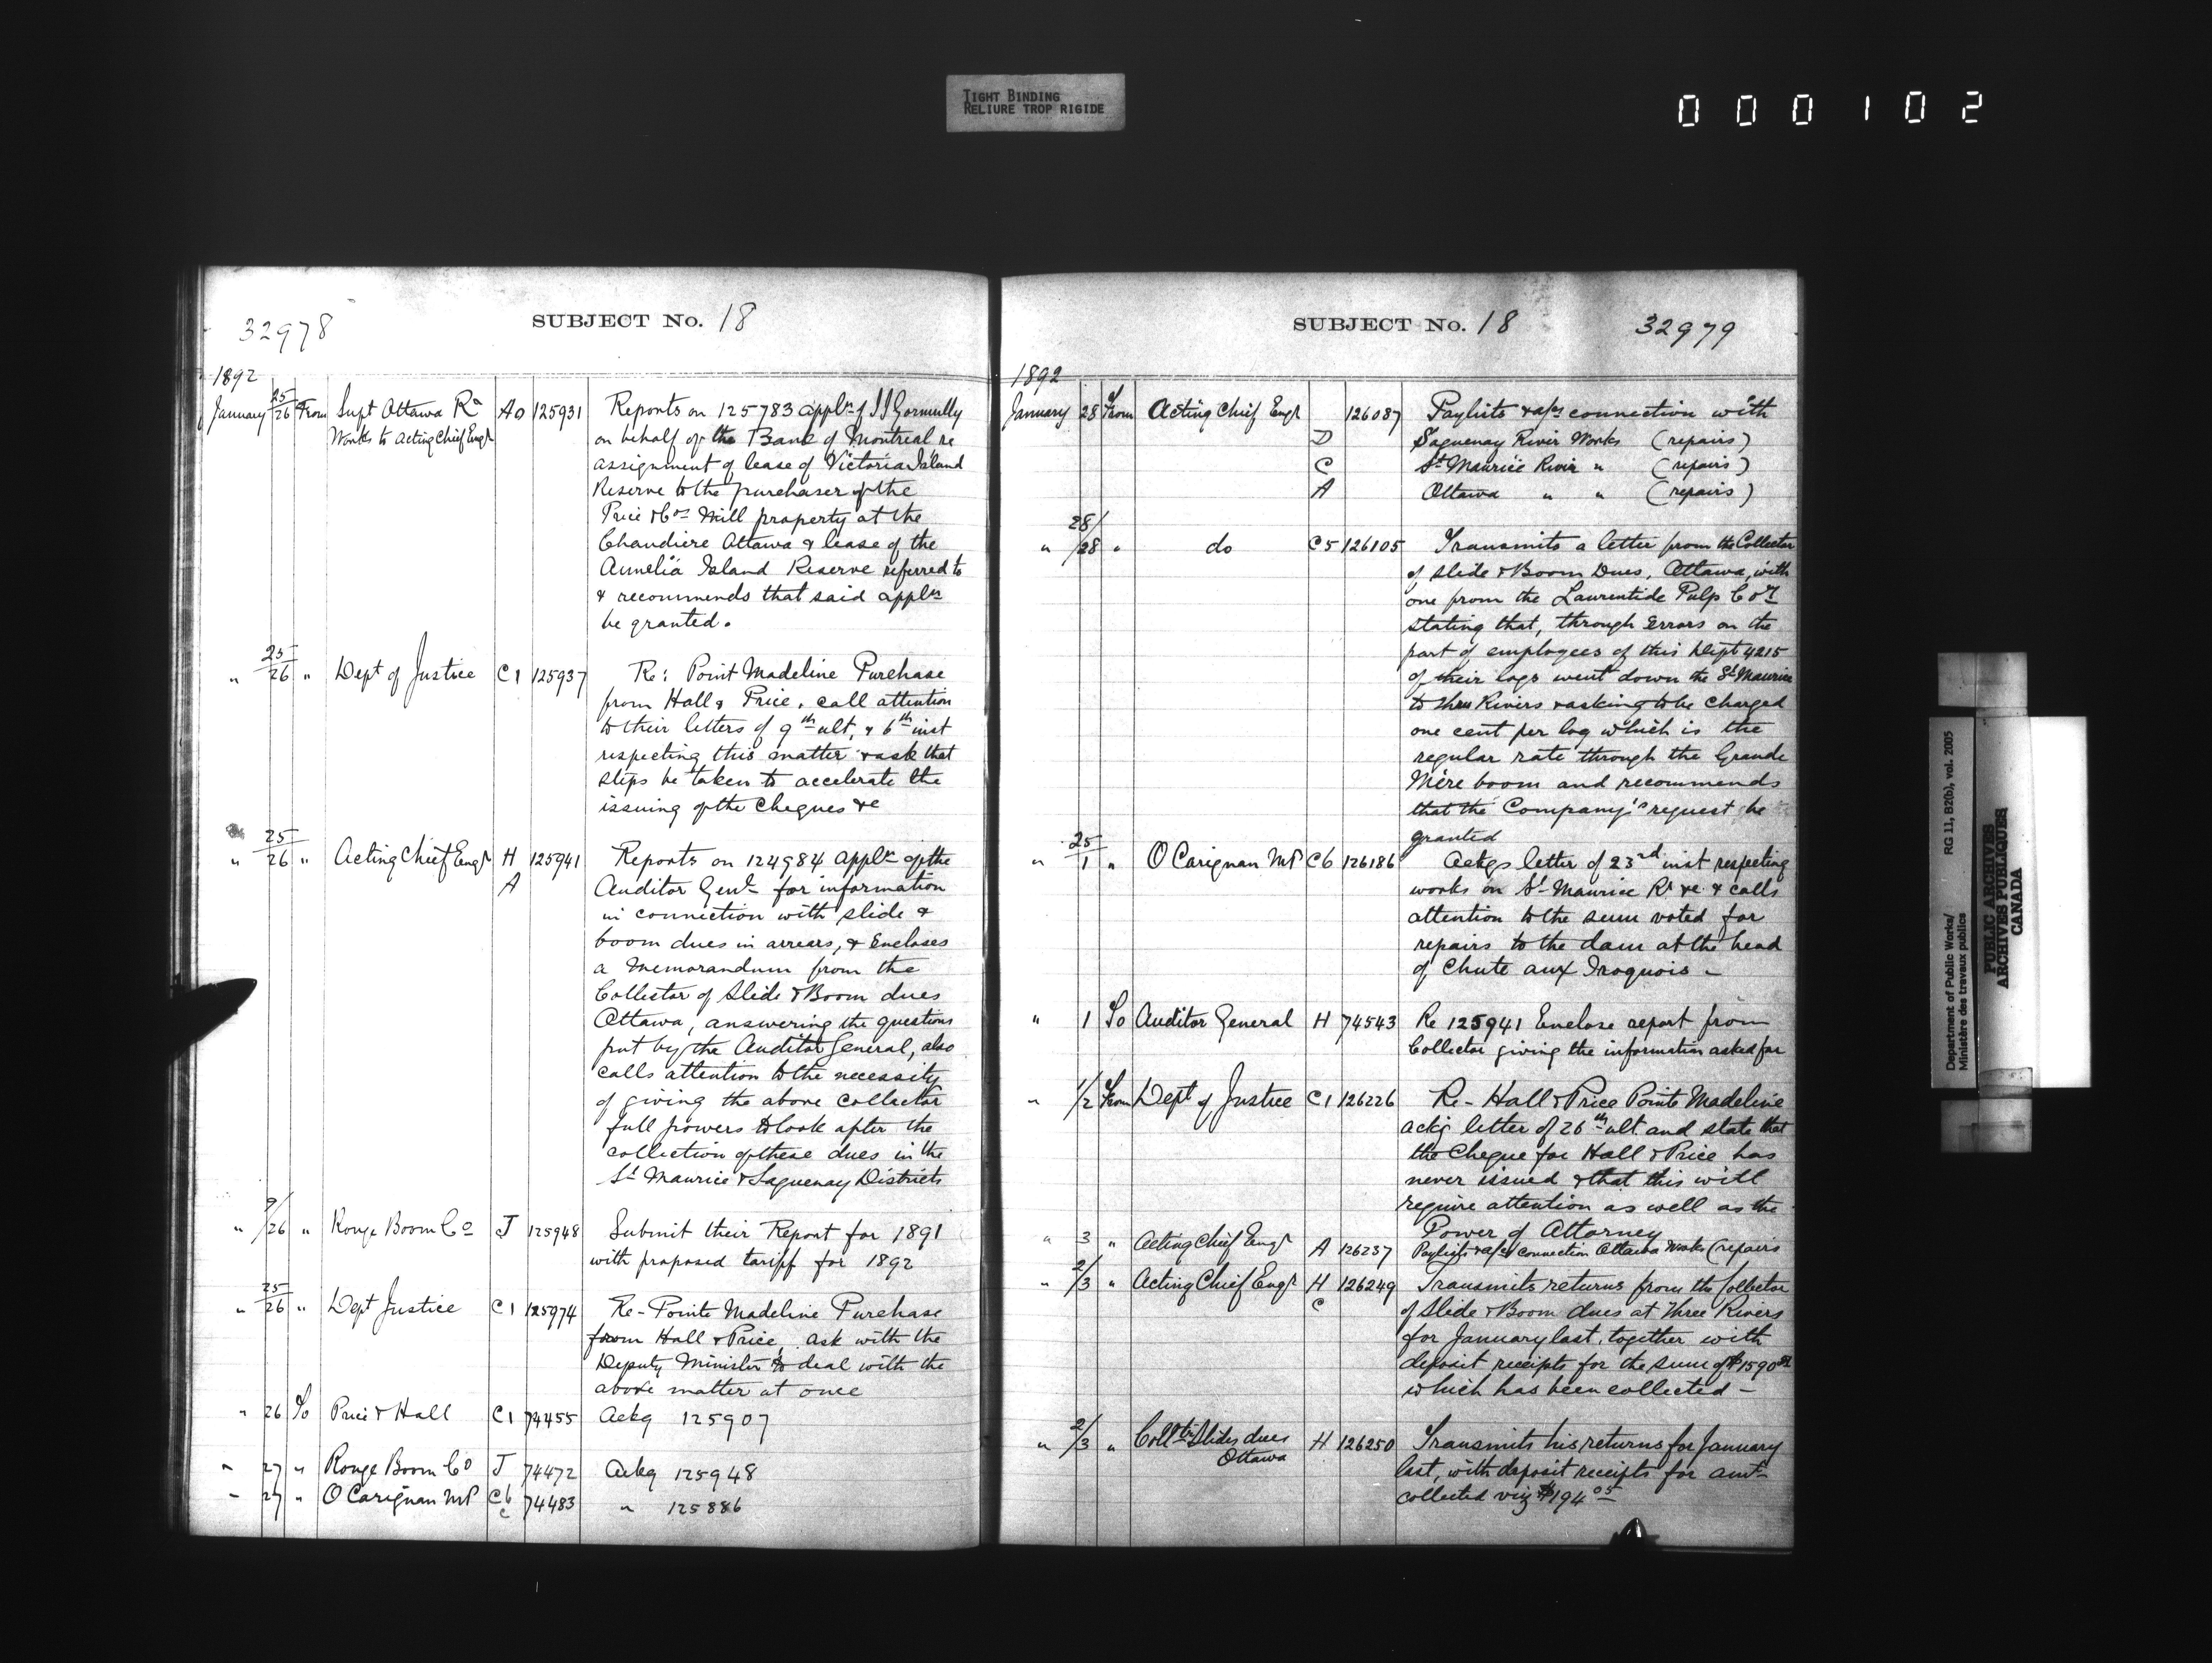 TIGHT BINDING
RELIURE TROP RIGIDE
000102
32978
SUBJECT No. 18
1892
January 25/26 From Supt Ottawa Ra A0 125931 Reports on 125783 appln of J J Gormully
Works to Acting Chief Engr on behalf of the Bank of Montreal re
assignment of lease of Victoria Island
Reserve to the purchaser of the
Price & Cos Mill property at the
Chaudiere Ottawa & lease of the
Amelia Island Reserve referred to
& recommends that said appln
be granted.
" 25/26 " Dept of Justice C1 125937 Re: Point Madeline Purchase
from Hall & Price, call attention
to their letters of 9th ult, & 6th inst
respecting this matter & ask that
steps be taken to accelerate the
issuing of the Cheques &c
" 25/26 " Acting Chief Engr H 125941 Reports on 124984 appln of the
A Auditor Genl for information
in connection with slide &
boom dues in arrears, & Encloses
a Memorandum from the
Collector of Slide & Boom dues
Ottawa, answering the questions
put by the Auditor General, also
calls attention to the necessity
of giving the above Collector
full powers to look after the
collection of these dues in the
St Maurice & Saguenay Districts
" 9/26 " Rouge Boom Co J 125948 Submit their Report for 1891
with proposed tariff for 1892
" 25/26 " Dept Justice C1 125974 Re - Pointe Madeline Purchase
from Hall & Price, ask with the
Deputy Minister to deal with the
above matter at once
" 26 To Price & Hall C1 74455 Ackg 125907
" 27 " Rouge Boom Co J 74472 Ackg 125948
" 27 " O Carignan MP C6 74483 " 125886
C
SUBJECT No. 18
32979
1892
January 28 From Acting Chief Engr 126087 Paylists & a/cs connection with
D Saguenay River Works (repairs)
C St Maurice River " (repairs)
A Ottawa " " (repairs)
" 28/28 " do C5 126105 Transmits a letter from the Collector
of Slide & Boom Dues, Ottawa, with
one from the Laurentide Pulp Coy
stating that, through Errors on the
part of employees of this Dept 4215
of their logs went down the St Maurice
to Three Rivers & asking to be charged
one cent per log which is the
regular rate through the Grande
Mère boom and recommends
that the Company's request be
granted
" 25/1 " O Carignan MP C6 126186 Ackgs letter of 23rd inst respecting
works on St Maurice Rr &c & calls
attention to the sum voted for
repairs to the dam at the head
of Chute aux Iroquois -
" 1 To Auditor General H 74543 Re 125941 Enclose report from
Collector giving the information asked for
" 1/2 From Dept of Justice C1 126226 Re - Hall & Price Pointe Madeline
ackg letter of 26th ult and state that
the Cheque for Hall & Price has
never issued & that this will
require attention as well as the
Power of Attorney
" 3 " Acting Chief Engr A 126237 Paylists & a/cs connection Ottawa Works (repairs
" 2/3 " Acting Chief Engr H 126249 Transmits returns from the Collector
C of Slide & Boom dues at Three Rivers
for January last, together with
deposit receipts for the sum of $1590
which has been collected -
" 2/3 " Colltr Slides dues H 126250 Transmits his returns for January
Ottawa last, with deposit receipts for amt
collected viz $194.05
Department of Public Works/ RG 11, B2(b), vol. 2005
Ministère des travaux publics
PUBLIC ARCHIVES
ARCHIVES PUBLIQUES
CANADA